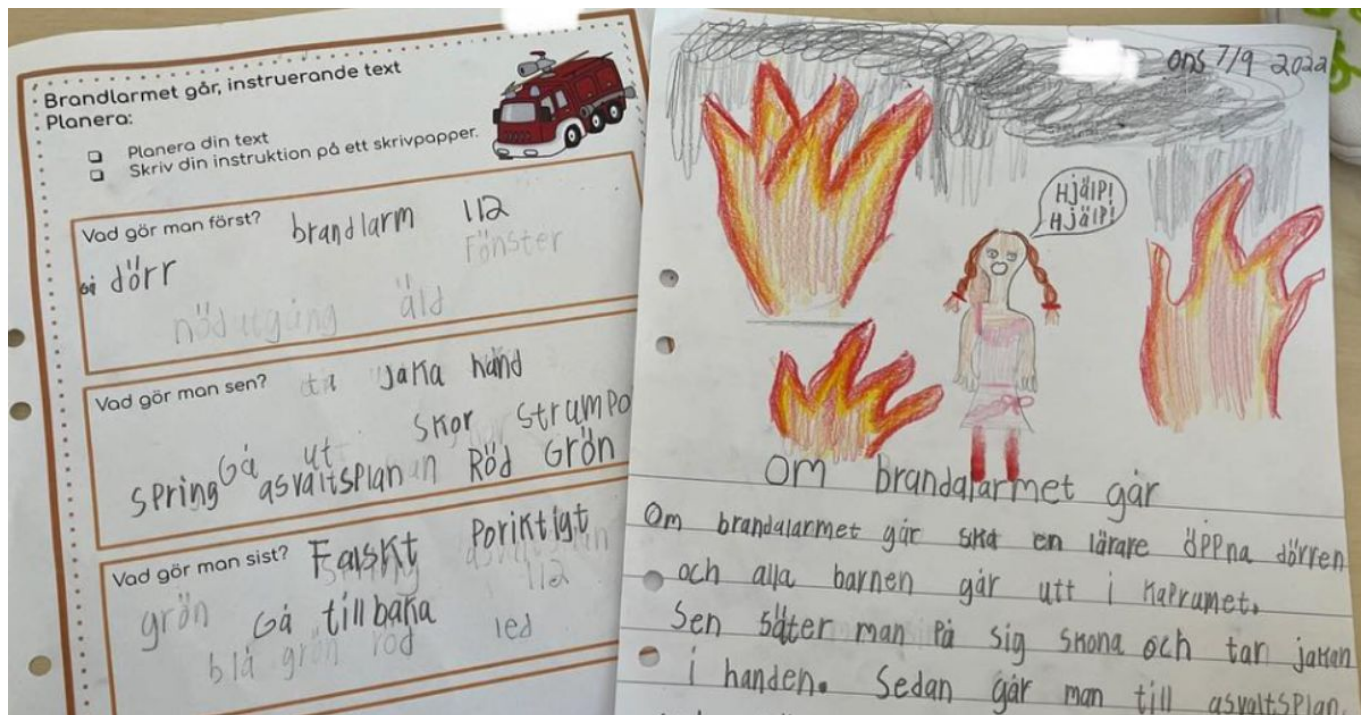 Brandlarmet går, instruerande text
Planera:
Planera din text
Skriv din instruktion på ett skrivpapper.
Vad gör man först? brandlarm 112
gi dörr Fönster
nödutgång äld
Vad gör man sen? ta jaka hand
skor strumpo
spring Gå ut asvaltsplan Röd Grön
Vad gör man sist? Falskt Poriktigt
112
grön Gå tillbaka
blå grön röd led
ons 7/9 2022
HJälP!
HJälP!
Om brandalarmet går
Om brandalarmet går ska en lärare öPPna dörren
och alla barnen går utt i kaprumet.
Sen säter man på sig skona och tar jakan
i handen. Sedan går man till asvaltsplan.